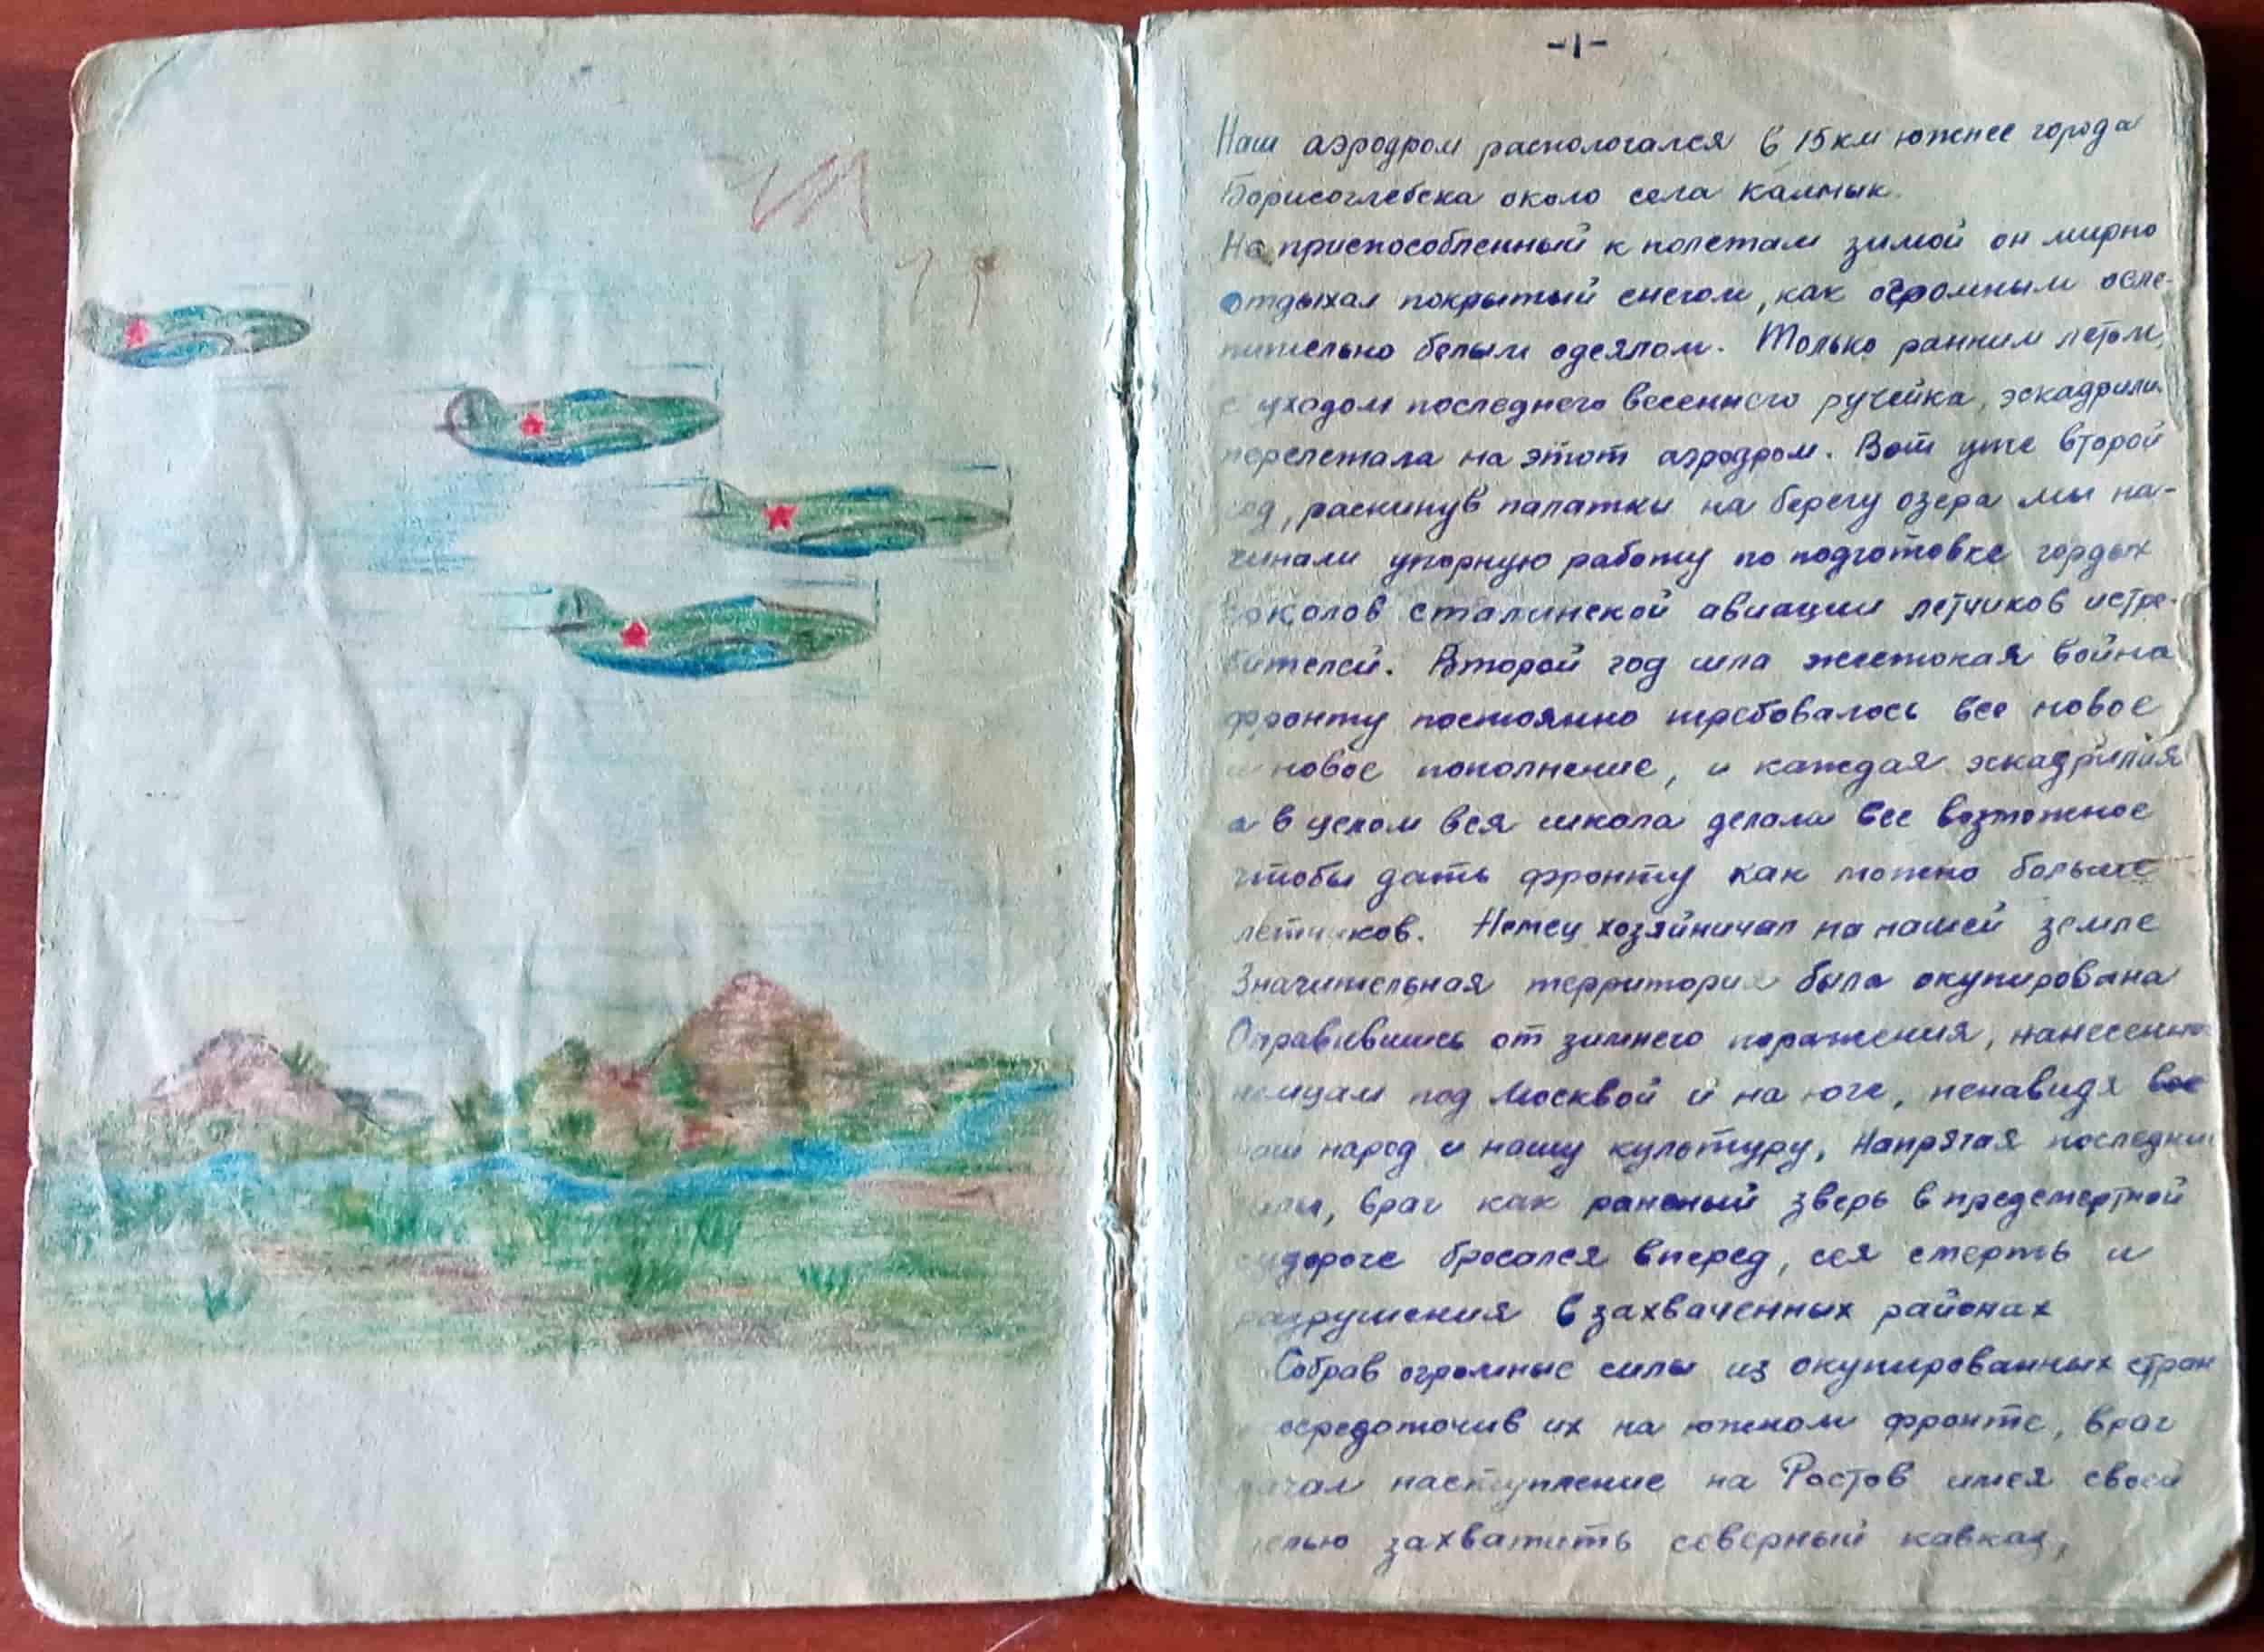 -1-
Наш аэродром распологался в 15 км южнее города
Борисоглебска около села Калмык.
Не приспособленный к полетам зимой он мирно
отдыхал покрытый снегом, как огромным осле-
пительно белым одеялом. Только ранним летом,
с уходом последнего весеннего ручейка, эскадрилия
перелетала на этот аэродром. Вот уже второй
год, раскинув палатки на берегу озера мы на-
чинали упорную работу по подготовке гордых
соколов сталинской авиации летчиков истре-
бителей. Второй год шла жестокая война
фронту постоянно требовалось все новое
и новое пополнение, и каждая эскадрилия
а в целом вся школа делала все возможное
чтобы дать фронту как можно больше
летчиков. Немец хозяйничал на нашей земле
Значительная территория была окупирована
Оправившись от зимнего поражения, нанесенного
немцам под Москвой и на юге, ненавидя все
наш народ и нашу культуру, напрягая последнии
силы, враг как раненый зверь в предсмертной
судороге бросался вперед, сея смерть и
разрушения в захваченных районах
Собрав огромные силы из окупированных стран
сосредоточив их на южном фронте, враг
начал наступление на Ростов имея своей
целью захватить северный кавказ,